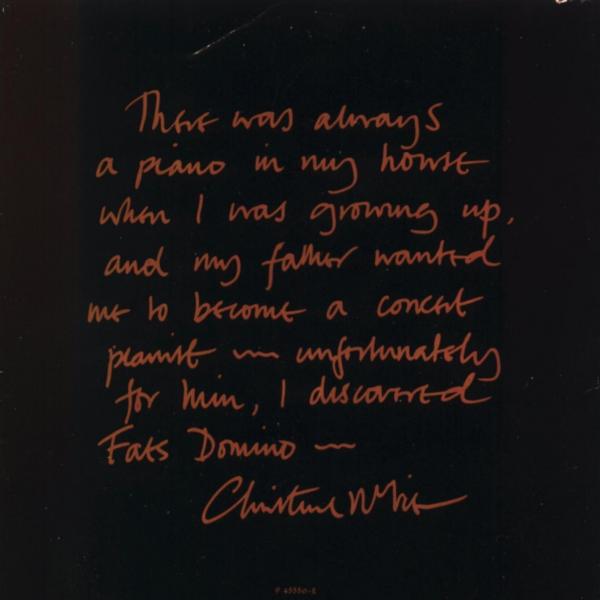 There was always
a piano in my house
when I was growing up,
and my father wanted
me to become a concert
pianist — unfortunately
for him, I discovered
Fats Domino —
Christine McVie